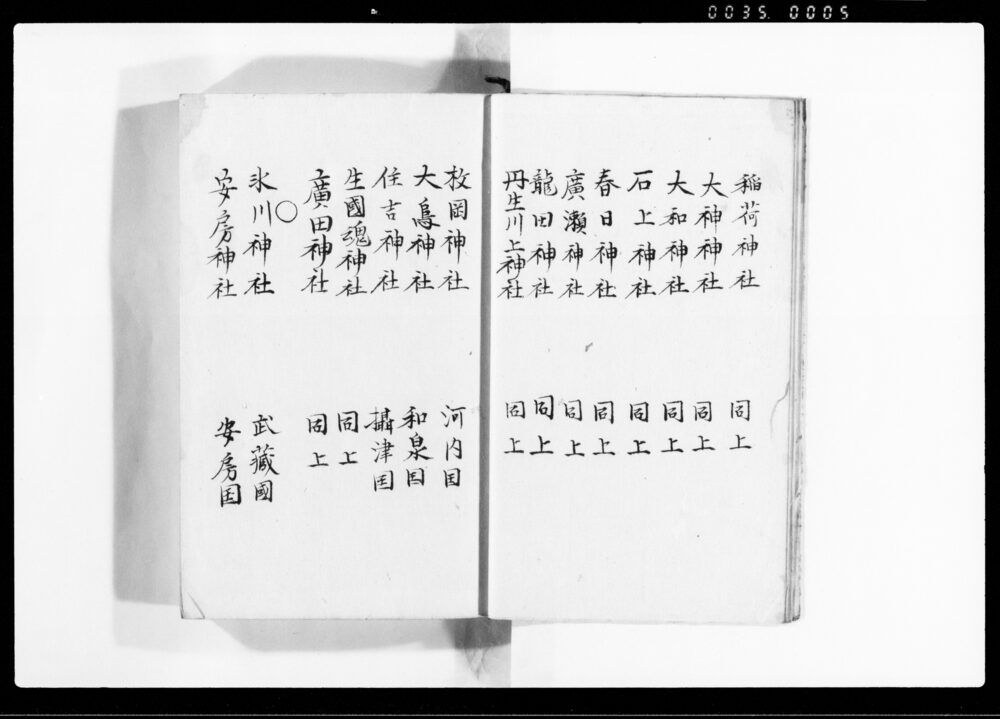 0035. 0005
稲荷神社 同上
大神神社 同上
大和神社 同上
石上神社 同上
春日神社 同上
廣瀬神社 同上
龍田神社 同上
丹生川上神社 同上
枚岡神社 河内国
大鳥神社 和泉国
住吉神社 摂津国
生國魂神社 同上
廣田神社 同上
○
氷川神社 武蔵國
安房神社 安房国